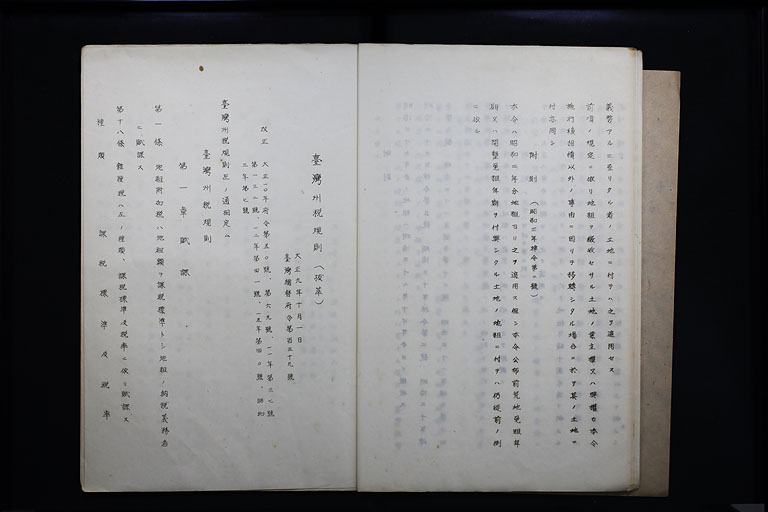 義務アルニ至リタル者ノ土地ニ付テハ之ヲ適用セス
前項ノ規定ニ依リ地租ヲ徴收セサル土地ノ業主權又ハ典權カ本令
施行後相續以外ノ事由ニ因リテ移轉シタル場合ニ於テ其ノ土地ニ
付亦同シ
附則(昭和二年律令第二號)
本令ハ昭和二年分地租ヨリ之ヲ適用ス但シ本令公布前荒地免租年
期又ハ開墾免租年期ヲ付與シタル土地ノ地租ニ付テハ仍從前ノ例
ニ依ル
臺灣州税規則(拔萃)
大正九年十月一日
臺灣總督府令第百三十九號
改正 大正一〇年府令第五〇號、第六九號、一一年第三七號
第一三二號、一三年第四一號、一五年第四〇號、昭和
三年第七號
臺灣州税規則左ノ通相定ム
臺灣州税規則
第一章 賦課
第一條 地租附加税ハ地租額ヲ課税標準トシ地租ノ納税義務者
ニ賦課ス
第十八條 雜種税ハ左ノ種類、課税標準及税率ニ依リ賦課ス
種類 課税標準及税率